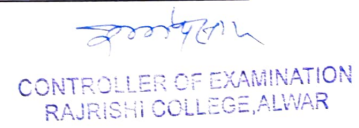 CONTROLLER OF EXAMINATION
RAJRISHI COLLEGE, ALWAR